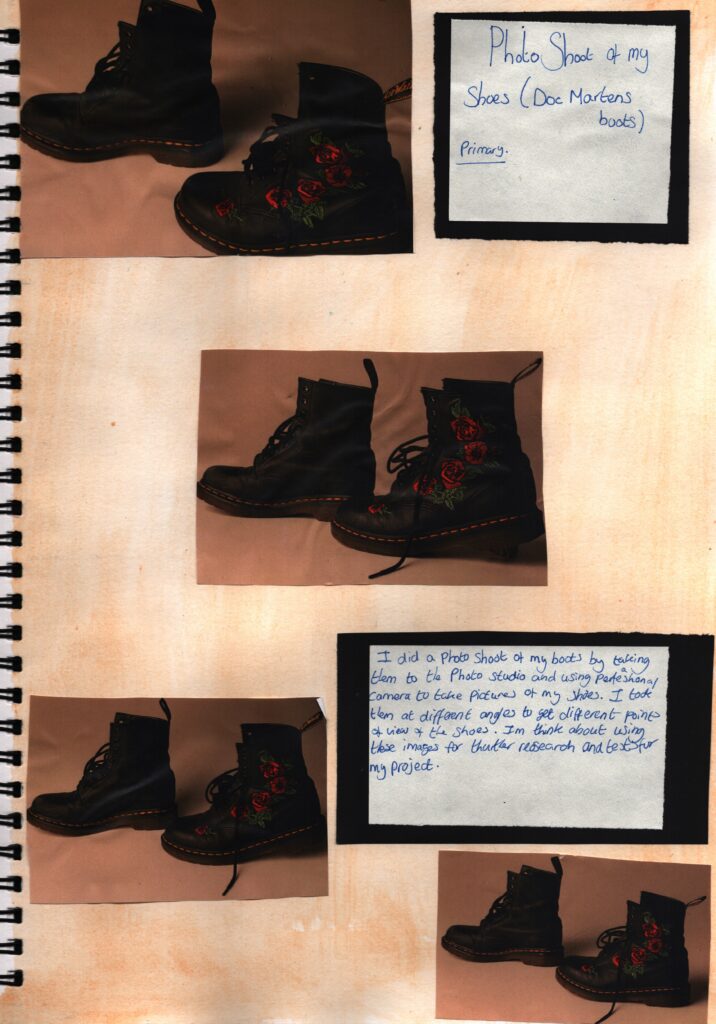 Photo Shoot of my
Shoes (Doc Martens
boots)
Primary.
I did a Photo Shoot of my boots by taking
them to the Photo studio and using a Perfeshanal
Camera to take Pictures of my Shoes. I took
them at different angles to get different Points
of view of the Shoes. I'm think about using
these images for thurther research and tests for
my Project.